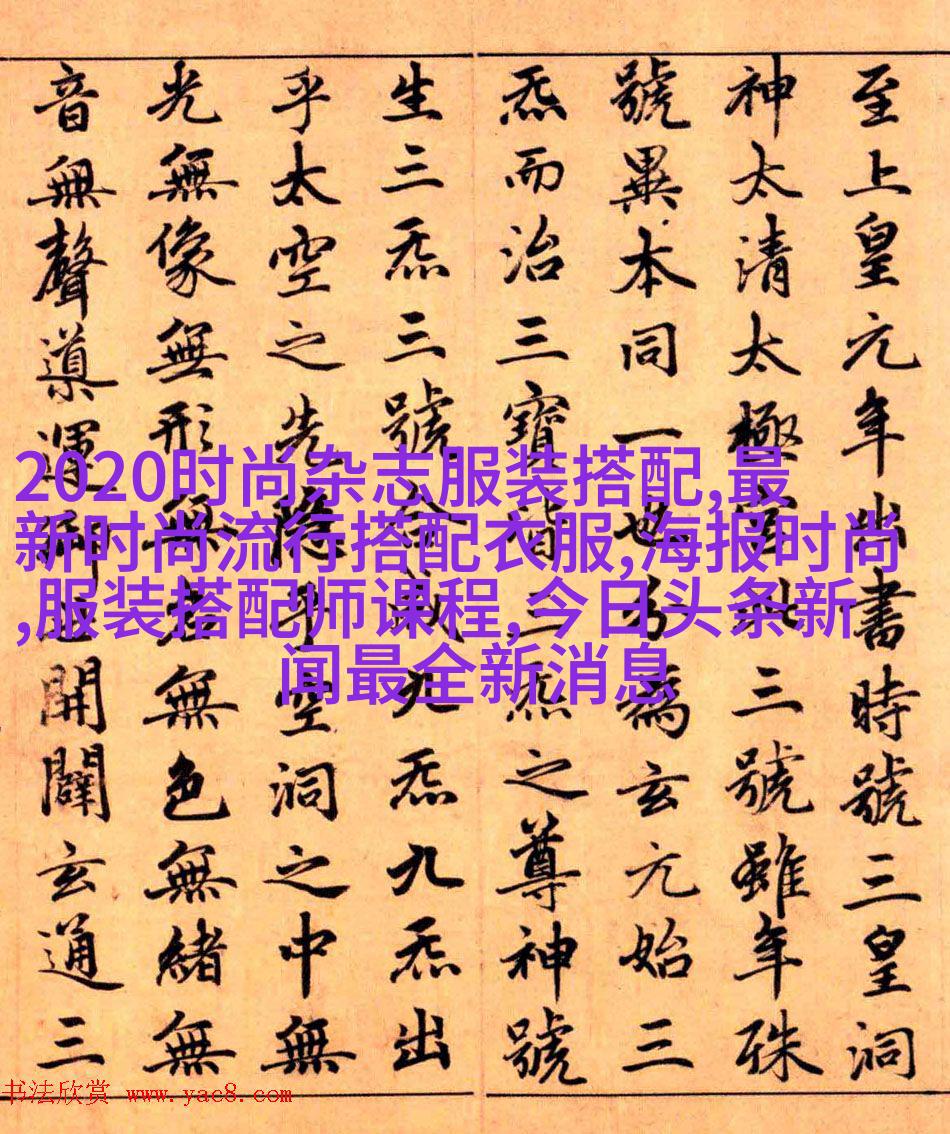 至上皇元年出書時號三皇洞
神太清太極宮此三號雖年殊
號異本同一也分為玄元始三
炁而治三寶皆三炁之尊神號
生三炁三號合成九炁九炁出
乎太空之先隱乎空洞之中無
光無像無形無名無色無緒無
音無聲導運御世開闢玄通三
2020时尚杂志服装搭配,最
新时尚流行搭配衣服,海报时尚
,服装搭配师课程,今日头条新
闻最全新消息
书法欣赏 www.yac8.com